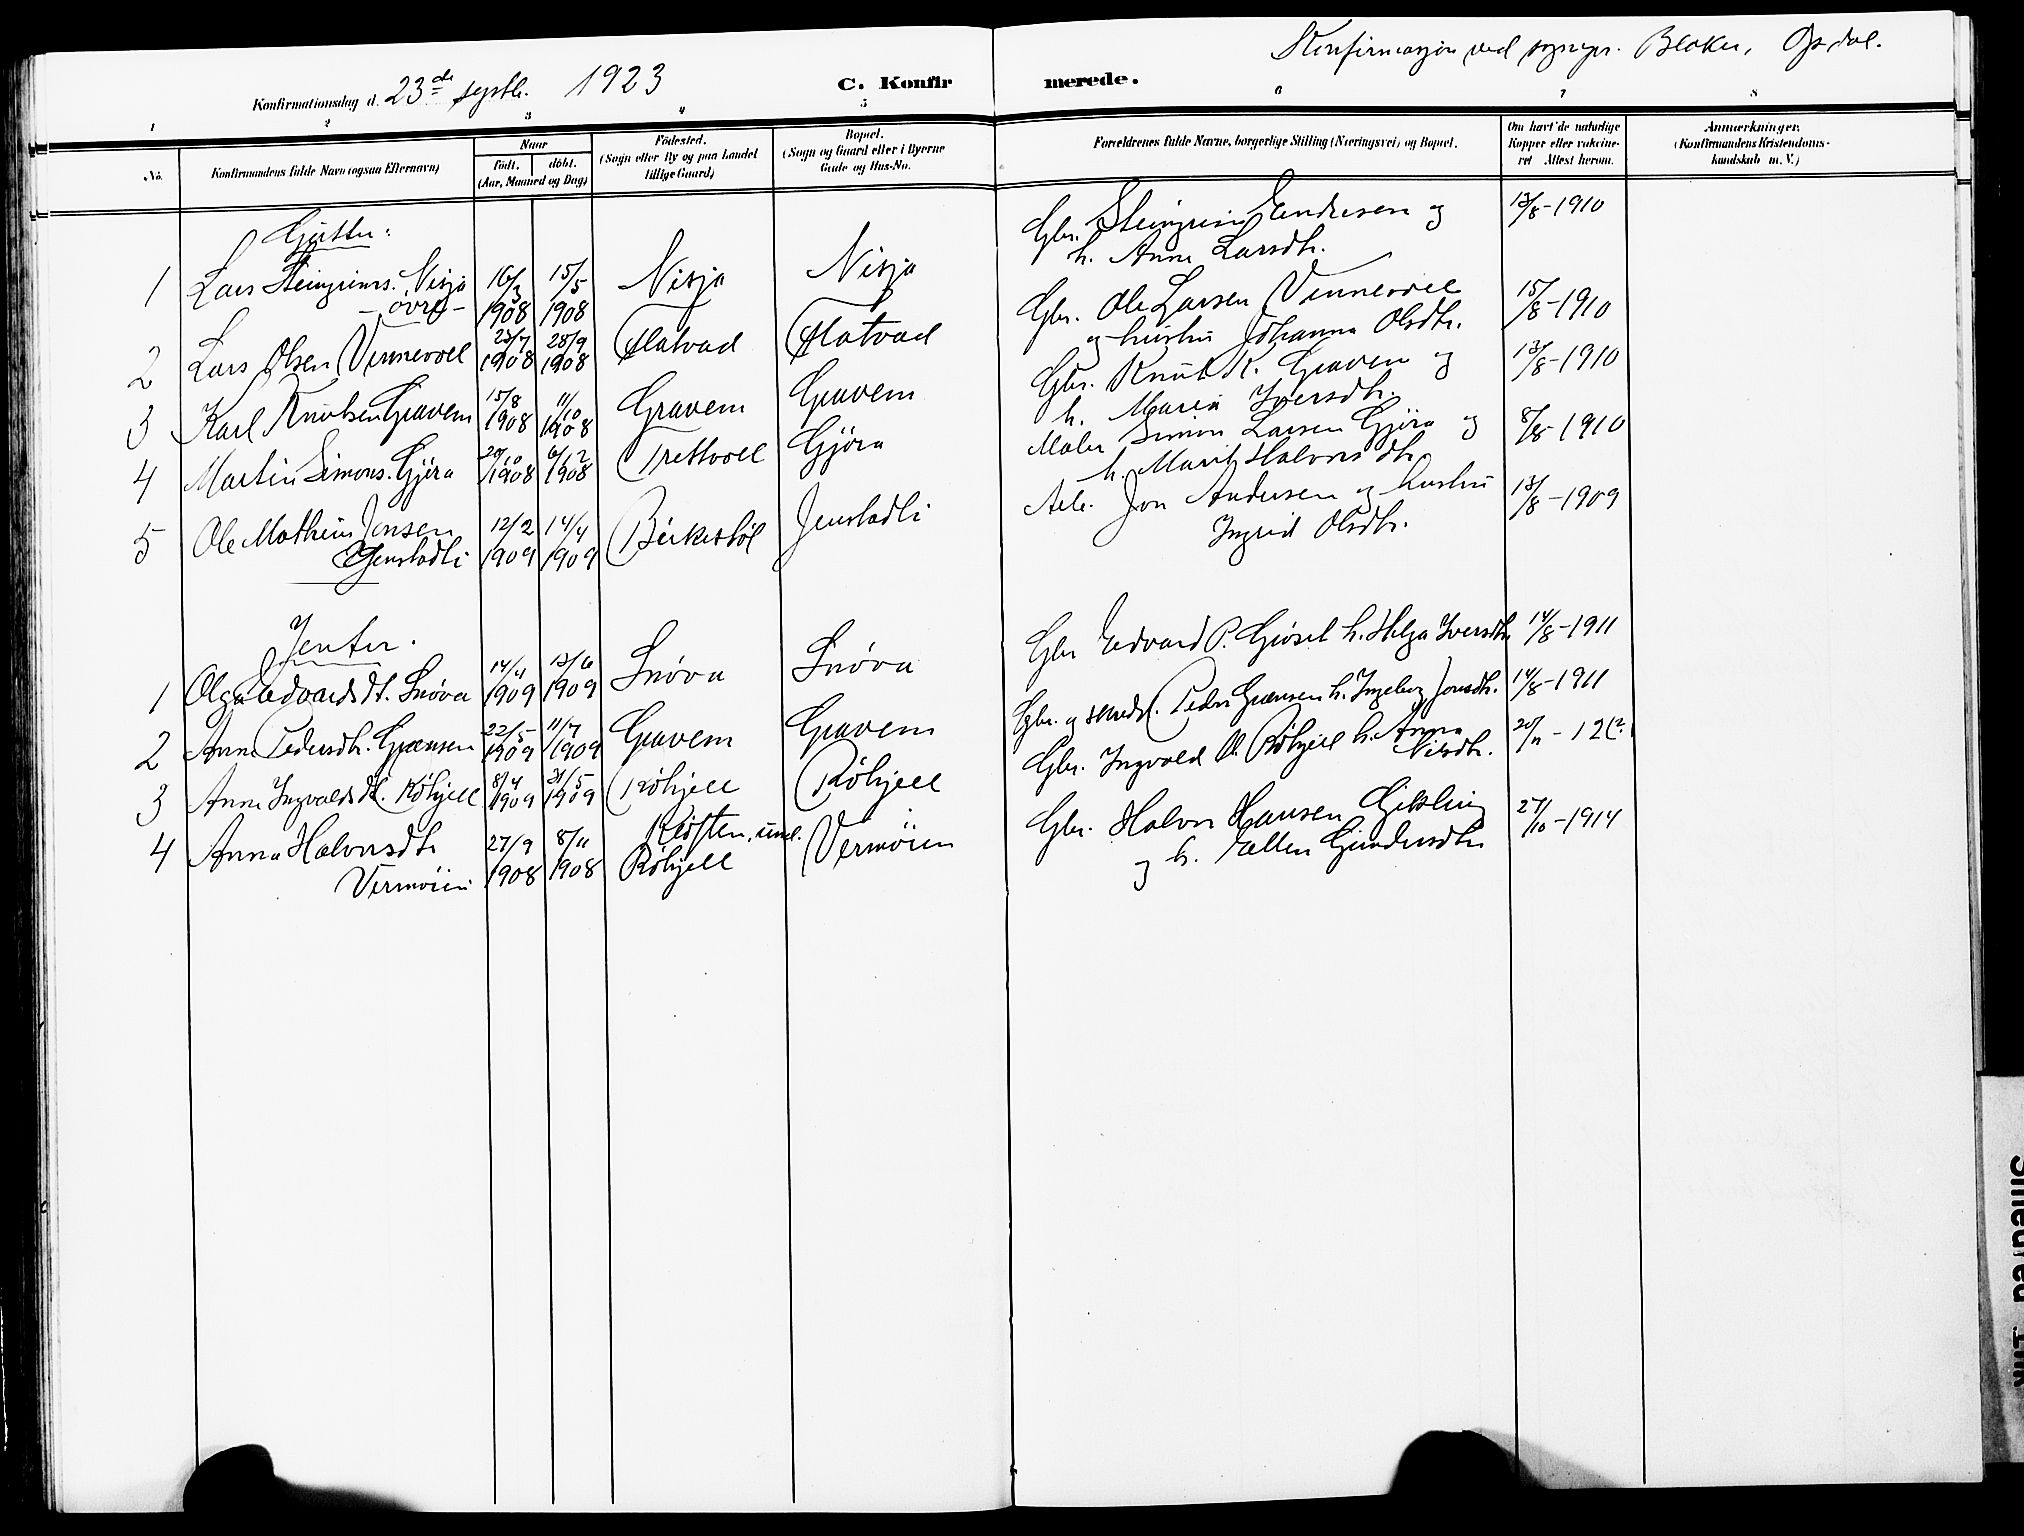 Konfirmasjon ved sognepr. Blakar, Opdal.
Konfirmationsdag d. 23de septbr. 1923
C. Konfirmerede.
1 2 3 4 5 6 7 8
No.
Konfirmandens fulde Navn (ogsaa Efternavn)
Naar
født. døbt.
(Aar, Maaned og Dag)
Fødested.
(Sogn eller By og paa Landet
tillige Gaard)
Bopæl.
(Sogn og Gaard eller i Byerne
Gade og Hus-No.
Forældrenes fulde Navne, borgerlige Stilling (Næringsvei) og Bopæl.
Om havt de naturlige
Kopper eller vaksine-
ret Attest herom.
Anmærkninger.
(Konfirmandens Kristendoms-
kundskab m. V.)
Gutter:
1 Lars Steingrims. Nisja 16/3 15/5 Nisja Nisja Gbr. Steingrim Endresen og 13/8-1910
- øvre - 1908 1908 h. Anne Larsdtr.
2 Lars Olsen Vennevoll 23/7 28/9 Flatvad Flatvad Gbr. Ole Larsen Vennevoll 15/8-1910
1908 1908 og hustru Johanna Olsdtr.
3 Karl Knutsen Gravem 15/8 11/10 Gravem Gravem Gbr. Knut K. Gravem og 13/8-1910
1908 1908 h. Marit Iversdtr.
4 Martin Simons. Gjøra 20/10 6/12 Trettvoll Gjøra Maler Simon Larsen Gjøra og 8/8-1910
1908 1908 h. Marit Halvorsdtr.
5 Ole Mathias Jonsen 12/2 14/4 Birkestøl Jenstadli Arb. Jon Andersen og hustru 13/8-1909
Jenstadli 1909 1909 Ingrid Olsdtr.
Jenter.
1 Olga Edvardsdt. Snøva 14/4 13/6 Snøva Snøva Gbr Edvard P. Gjøsel h. Helga Iversdtr 14/8-1911
1909 1909
2 Anne Pedersdtr. Grønsen 22/5 11/7 Gravem Gravem Gbr. og Peder Grønsen h. Ingeborg Jonsdtr. 14/8-1911
1909 1909
3 Anne Ingvaldsdt. Röhjell 8/4 31/5 Röhjell Röhjell Gbr. Ingvald O. Röhjell h. Anna 20/11-12 (?)
1909 1909 Nilsdtr.
4 Anna Halvorsdtr 27/9 8/11 Kløften, und. Vermøien Gbr. Halvor Hansen Gikling 27/10-1914
Vermøien 1908 1908 Röhjell og h. Ellen Gundersdtr